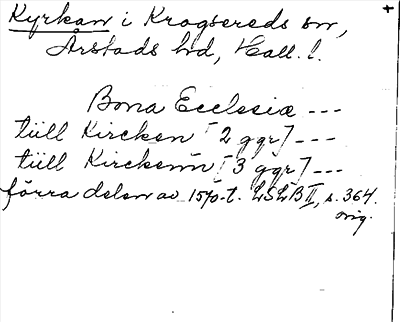 Kyrkan i Krogsereds sn,
Årstads hd, Hall. l.
Bona Ecclesiæ ---
tiill Kircken [2 ggr] ---
tiill Kirckenn [3 ggr] ---
förra delen av 1570-t. LSLB II, s. 364.
orig.